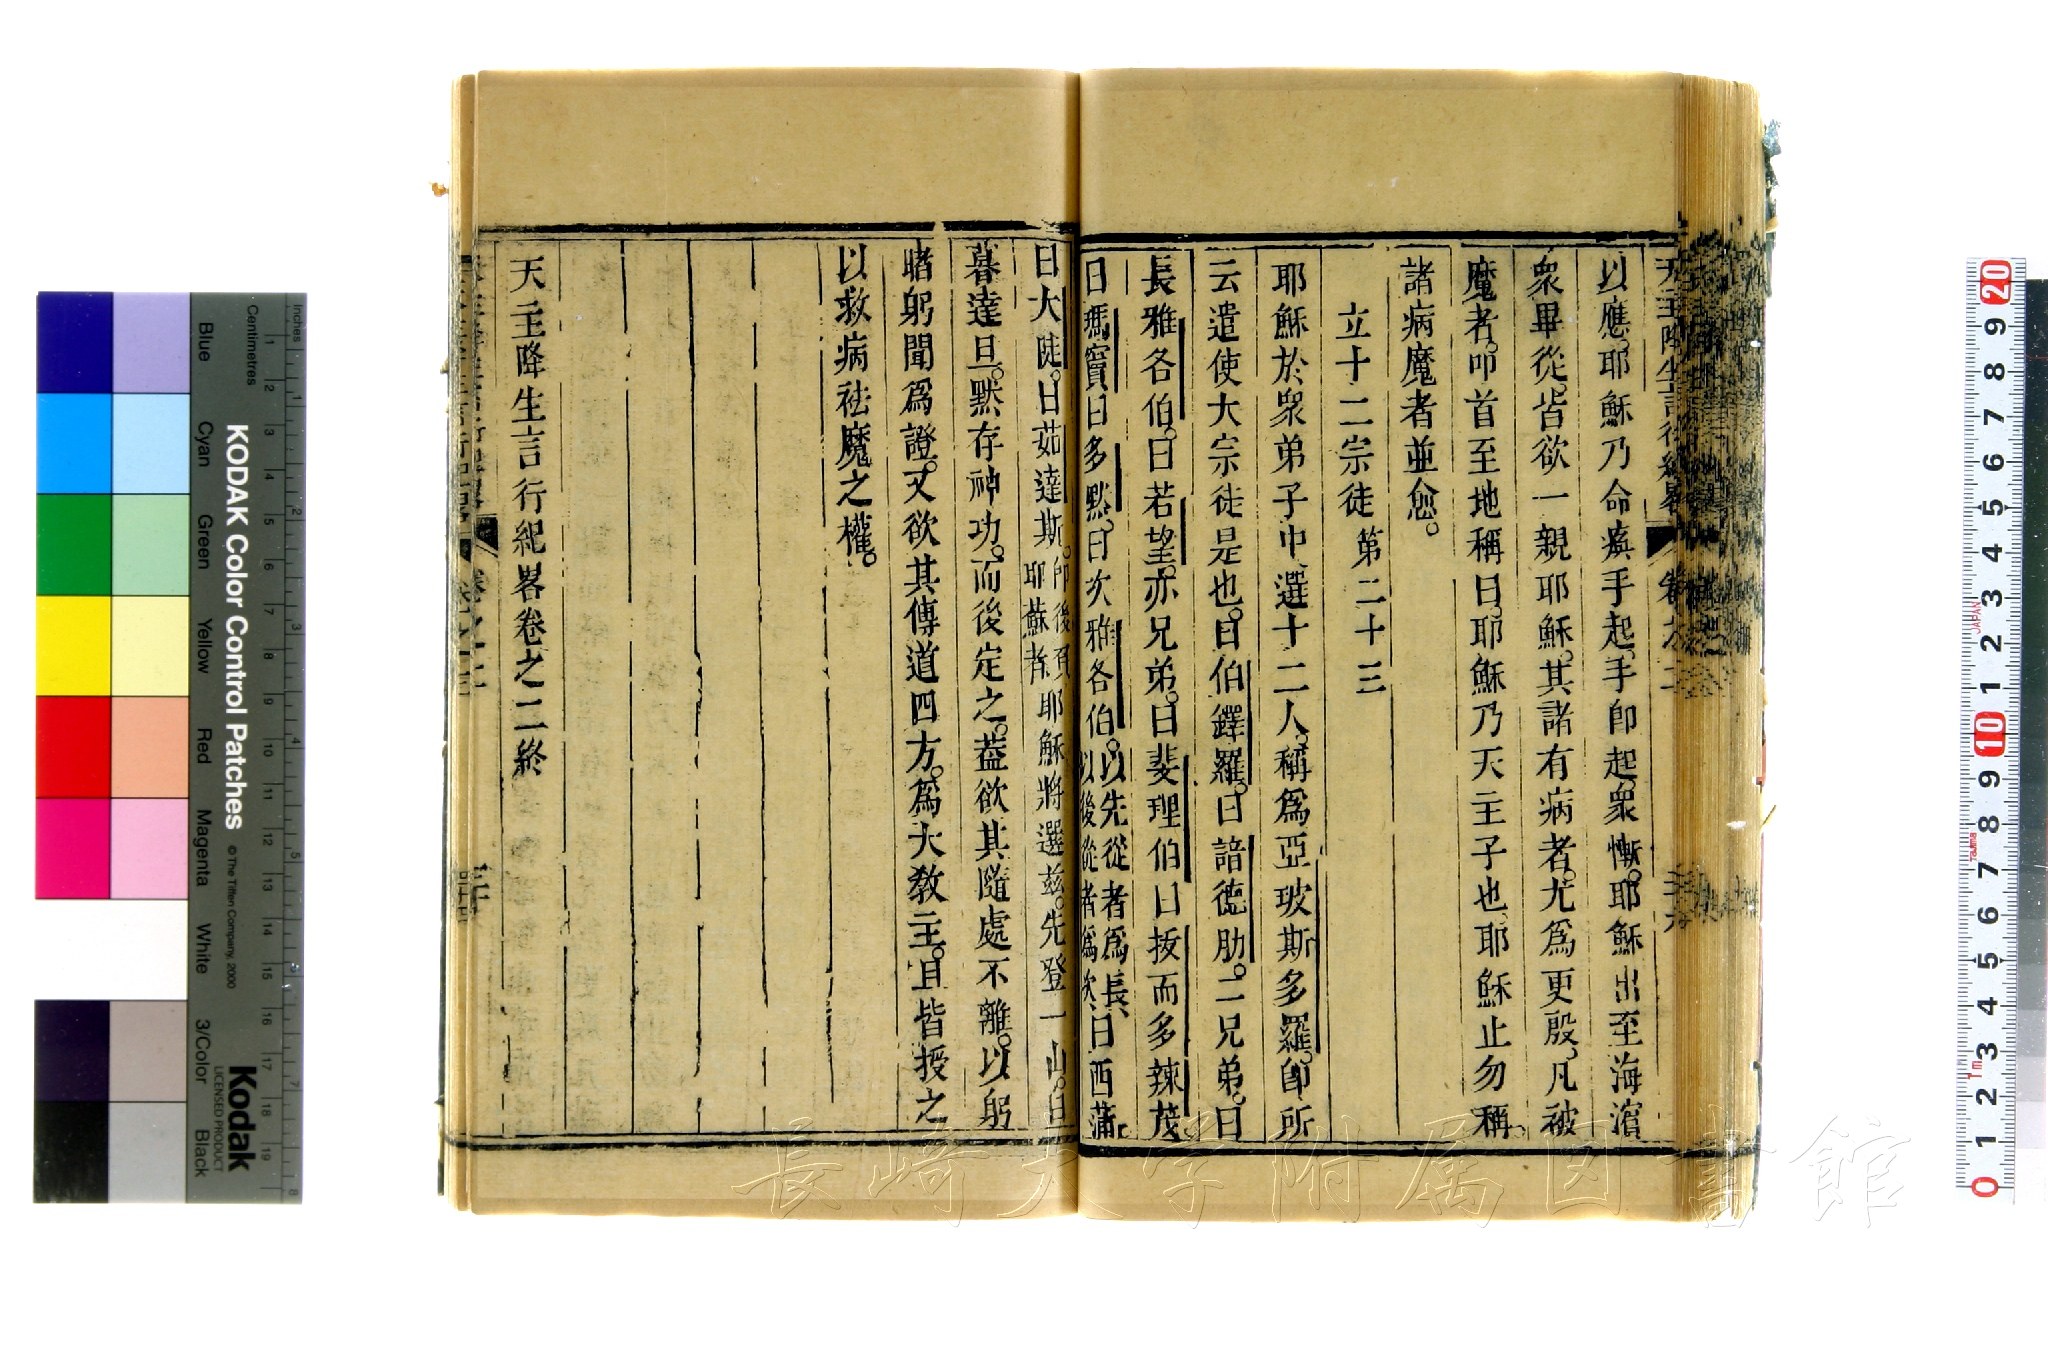 以應。耶穌乃命㾮手起。手卽起。衆慚。耶穌出至海濵
衆畢從。皆欲一親耶穌。其諸有病者。尤爲更殷。凡被
魔者。叩首至地稱曰。耶穌乃天主子也。耶穌止勿稱。
諸病魔者並愈。
立十二宗徒 第二十三
耶穌於衆弟子中選十二人。稱爲亞玻斯多羅。卽所
云遣使大宗徒是也。曰伯鐸羅。曰諳德肋。二兄弟。曰
長雅各伯。曰若望。亦兄弟。曰斐理伯曰拔而多辣茂。
曰瑪竇曰多默。曰次雅各伯。以先從者爲長以後從者爲次曰西蒲。
曰大陡。曰茹達斯。卽後負耶蘇者耶穌將選兹。先登一山。曰
暮達旦。黙存神功。而後定之。葢欲其隨處不離。以躬
睹躬聞爲證。又欲其傳道四方。爲大敎主。且皆授之
以救病祛魔之權。
天主降生言行紀畧卷之二終
長崎大学附属図書館
KODAK Color Control Patches
© The Tiffen Company, 2000
Kodak
LICENSED PRODUCT
Inches
Centimetres
Blue
Cyan
Green
Yellow
Red
Magenta
White
3/Color
Black
JAPAN